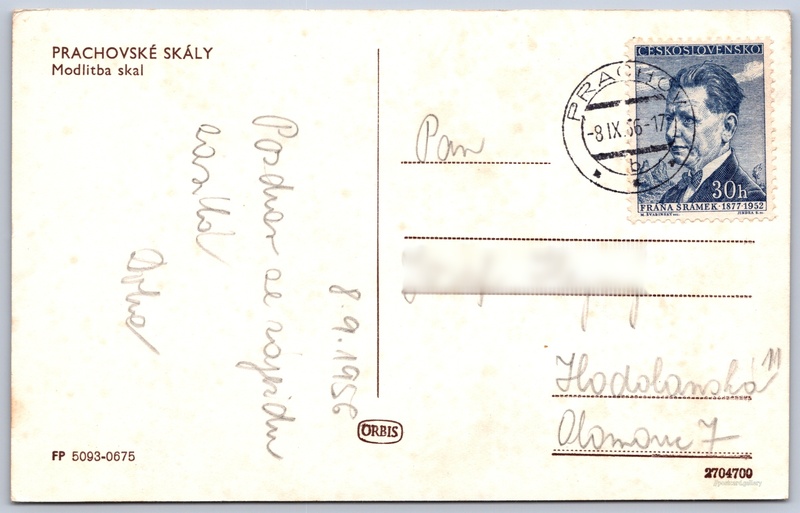 PRACHOVSKÉ SKÁLY
Modlitba skal
Pozdrav se zájezdu
zasílá
8.9.1956
ORBIS
FP 5093-0675
ČESKOSLOVENSKO
30h
FRÁŇA ŠRÁMEK · 1877-1952
PRACHOV
-8.IX.56-17
Pan
Hodolanská 11
Olomouc 7
2704709